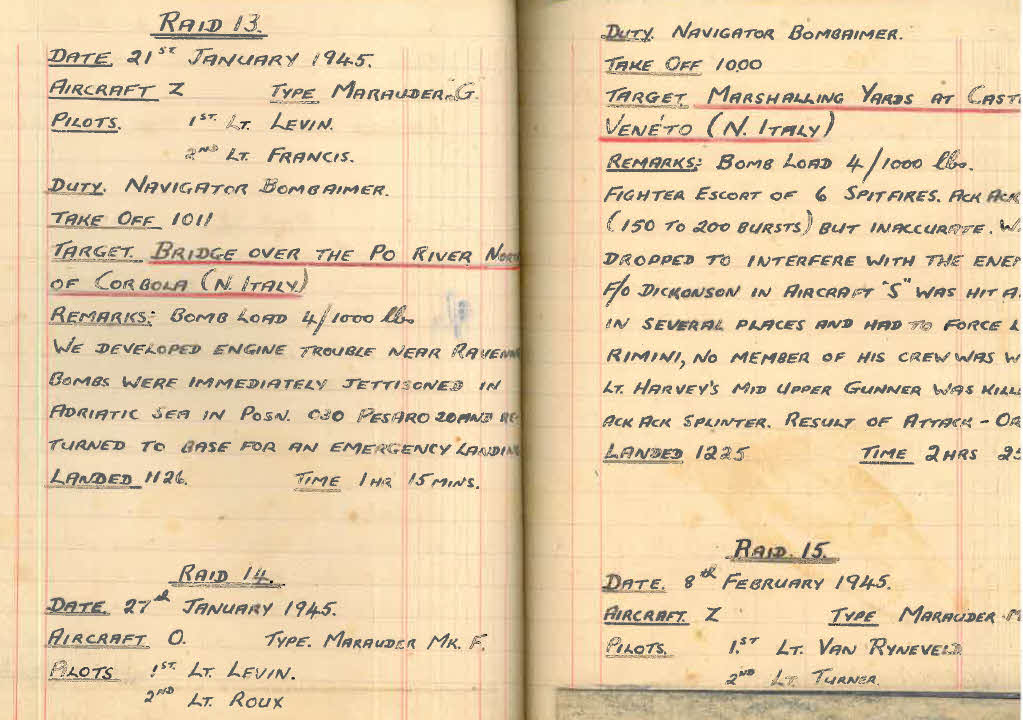 RAID 13.
DATE. 21ST JANUARY 1945.
AIRCRAFT Z TYPE MARAUDER."G.
PILOTS. 1ST. LT. LEVIN.
2ND LT. FRANCIS.
DUTY. NAVIGATOR BOMBAIMER.
TAKE OFF 1011
TARGET. BRIDGE OVER THE PO RIVER NOR
OF CORBOLA (N. ITALY)
REMARKS: BOMB LOAD 4/1000 lbs
WE DEVELOPED ENGINE TROUBLE NEAR RAVENN
BOMBS WERE IMMEDIATELY JETTISONED IN
ADRIATIC SEA IN POSN. 030 PESARO 20 AND RE-
TURNED TO BASE FOR AN EMERGENCY LANDIN
LANDED 1126. TIME 1 HR 15 MINS.
RAID 14.
DATE. 27th JANUARY 1945.
AIRCRAFT. O. TYPE. MARAUDER MK. F.
PILOTS 1ST. LT. LEVIN.
2ND LT. ROUX
DUTY. NAVIGATOR BOMBAIMER.
TAKE OFF 1000
TARGET. MARSHALLING YARDS AT CAST
VENÉTO (N. ITALY)
REMARKS: BOMB LOAD 4/1000 lbs.
FIGHTER ESCORT OF 6 SPITFIRES. ACK ACK
(150 TO 200 BURSTS) BUT INACCURATE. W
DROPPED TO INTERFERE WITH THE ENE
F/O DICKONSON IN AIRCRAFT "S" WAS HIT A
IN SEVERAL PLACES AND HAD TO FORCE L
RIMINI, NO MEMBER OF HIS CREW WAS W
LT. HARVEY'S MID UPPER GUNNER WAS KILL
ACK ACK SPLINTER. RESULT OF ATTACK - O
LANDED 1225 TIME 2 HRS 25
RAID. 15.
DATE. 8th FEBRUARY 1945.
AIRCRAFT. Z TYPE MARAUDER M
PILOTS. 1.ST LT. VAN RYNEVELD
2ND LT. TURNER.